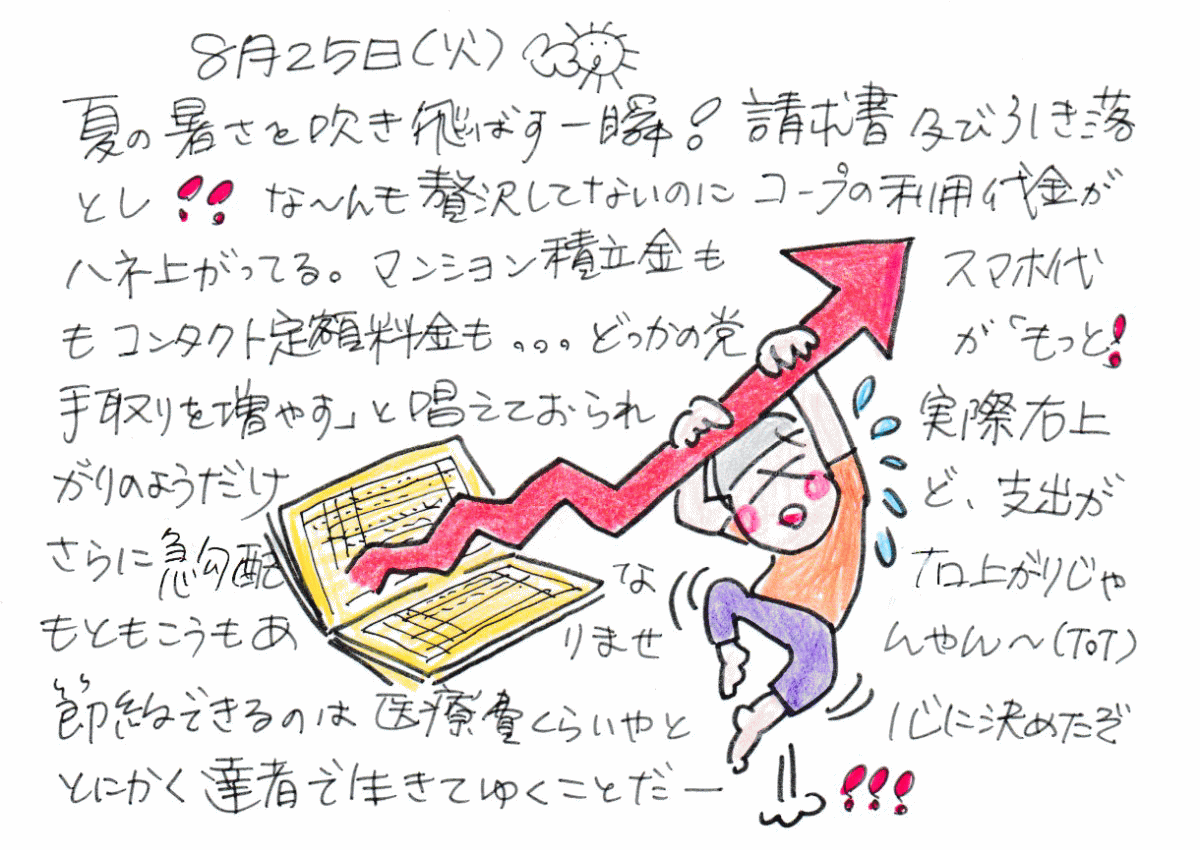 8月25日(火)
夏の暑さを吹き飛ばす一瞬! 請求書及び引き落
とし!! な～んも贅沢してないのにコープの利用代金が
ハネ上がってる。マンション積立金も スマホ代
もコンタクト定額料金も。。。どっかの党 が「もっと!
手取りを増やす」と唱えておられ 実際右上
がりのようだけ ど、支出が
さらに急勾配 な 右上がりじゃ
もともこうもあ りませ んやん～(ToT)
節約できるのは医療費くらいやと 心に決めたぞ
とにかく達者で生きてゆくことだー!!!